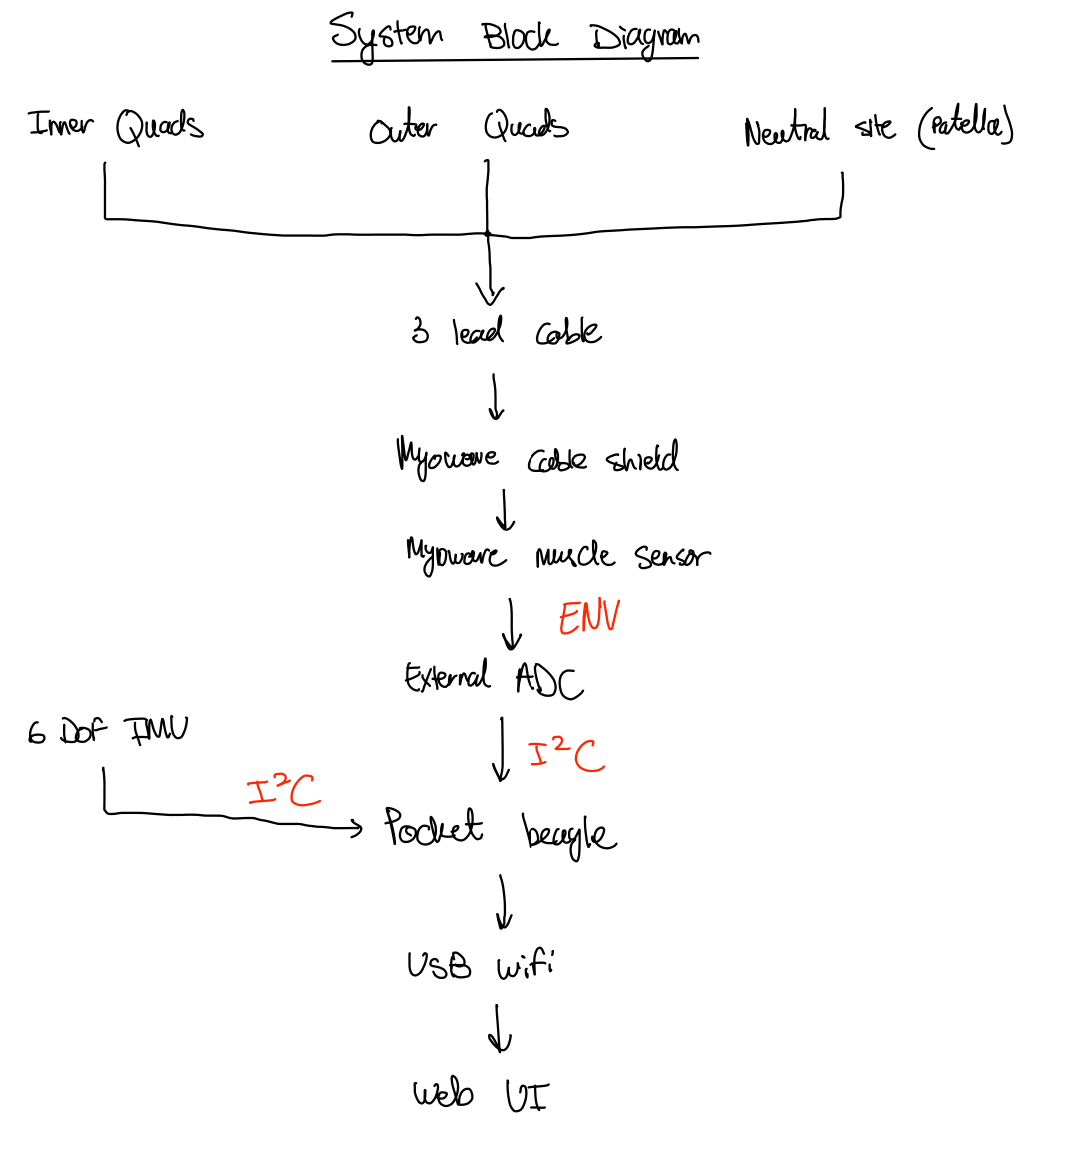 System Block Diagram
Inner Quads
Outer Quads
Neutral site (Patella)
3 lead cable
Myoware cable shield
Myoware muscle sensor
ENV
External ADC
6 DoF IMU
I²C
I²C
Pocket beagle
USB wifi
Web UI